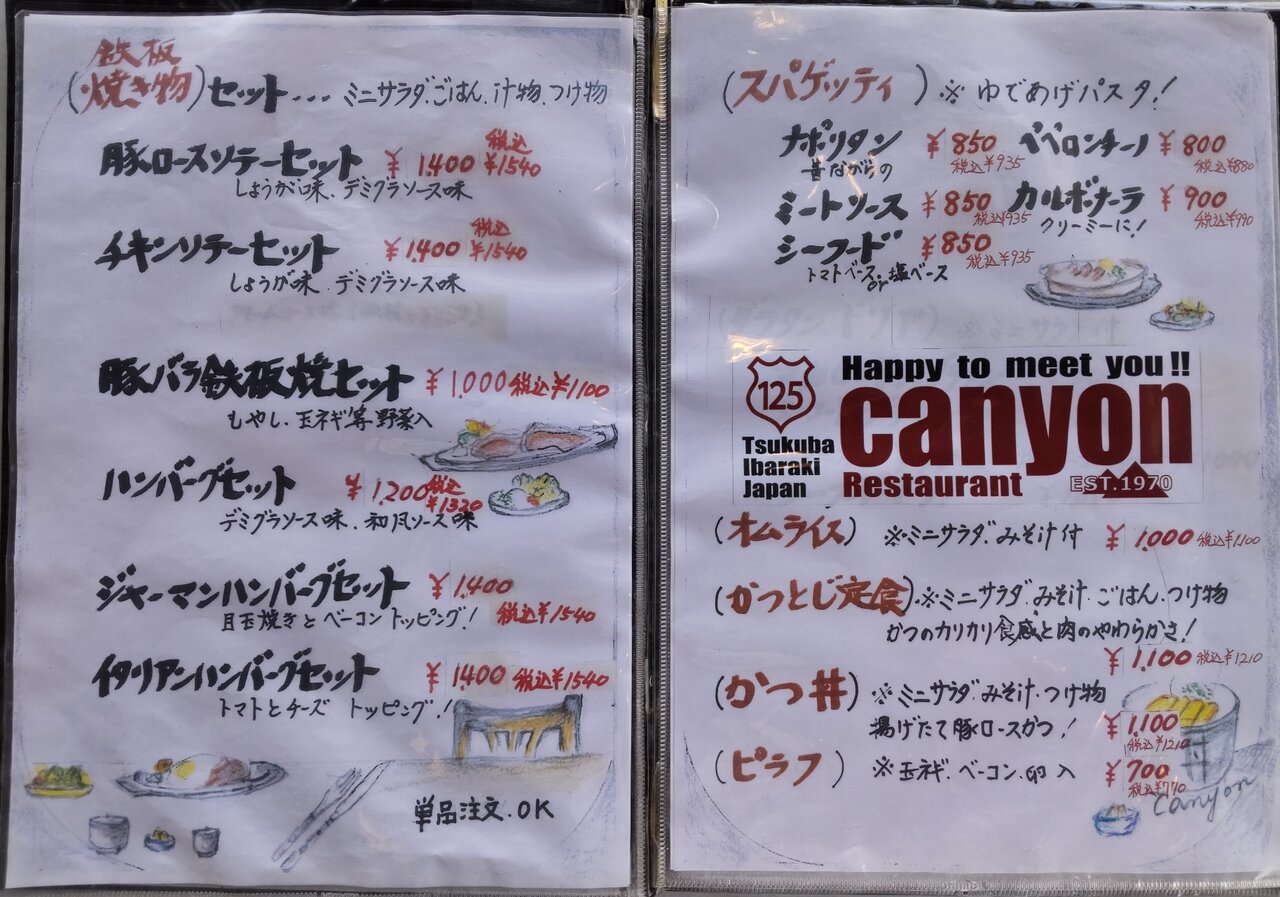 (鉄板焼き物)セット... ミニサラダ.ごはん.汁物.つけ物
豚ロースソテーセット ¥1.400 税込¥1540
しょうが味.デミグラソース味
チキンソテーセット ¥1.400 税込¥1540
しょうが味.デミグラソース味
豚バラ鉄板焼セット ¥1.000 税込¥1100
もやし.玉ネギ等野菜入
ハンバーグセット ¥1.200 税込¥1320
デミグラソース味.和風ソース味
ジャーマンハンバーグセット ¥1.400
目玉焼きとベーコントッピング! 税込¥1540
イタリアンハンバーグセット ¥1400 税込¥1540
トマトとチーズ トッピング!
単品注文.OK
(スパゲッティ)※ゆであげパスタ!
ナポリタン ¥850 ペペロンチーノ ¥800
昔ながらの 税込¥935 税込¥880
ミートソース ¥850 カルボナーラ ¥900
税込¥935 クリーミーに! 税込¥990
シーフード ¥850
トマトベースor塩ベース 税込¥935
Happy to meet you!!
125
canyon
Tsukuba
Ibaraki
Japan
Restaurant
EST.1970
(オムライス)※ミニサラダ.みそ汁付 ¥1.000 税込¥1100
(かつとじ定食)※ミニサラダ.みそ汁.ごはん.つけ物
かつのカリカリ食感と肉のやわらかさ!
¥1.100 税込¥1210
(かつ丼)※ミニサラダ.みそ汁.つけ物
揚げたて豚ロースかつ! ¥1.100
税込¥1210
(ピラフ)※玉ネギ.ベーコン.卵入 ¥700
税込¥770
丼
canyon